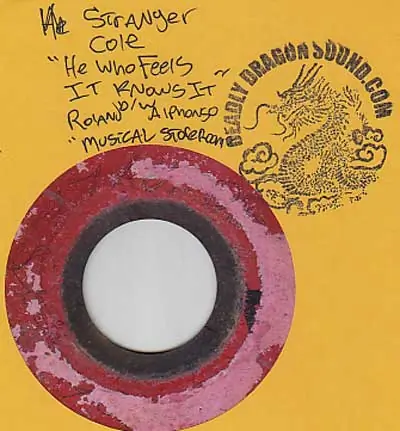 Stranger
Cole
"He Who Feels
It Knows It"
b/w
Roland Alphonso
"Musical Storeroom
DEADLY DRAGON SOUND.COM